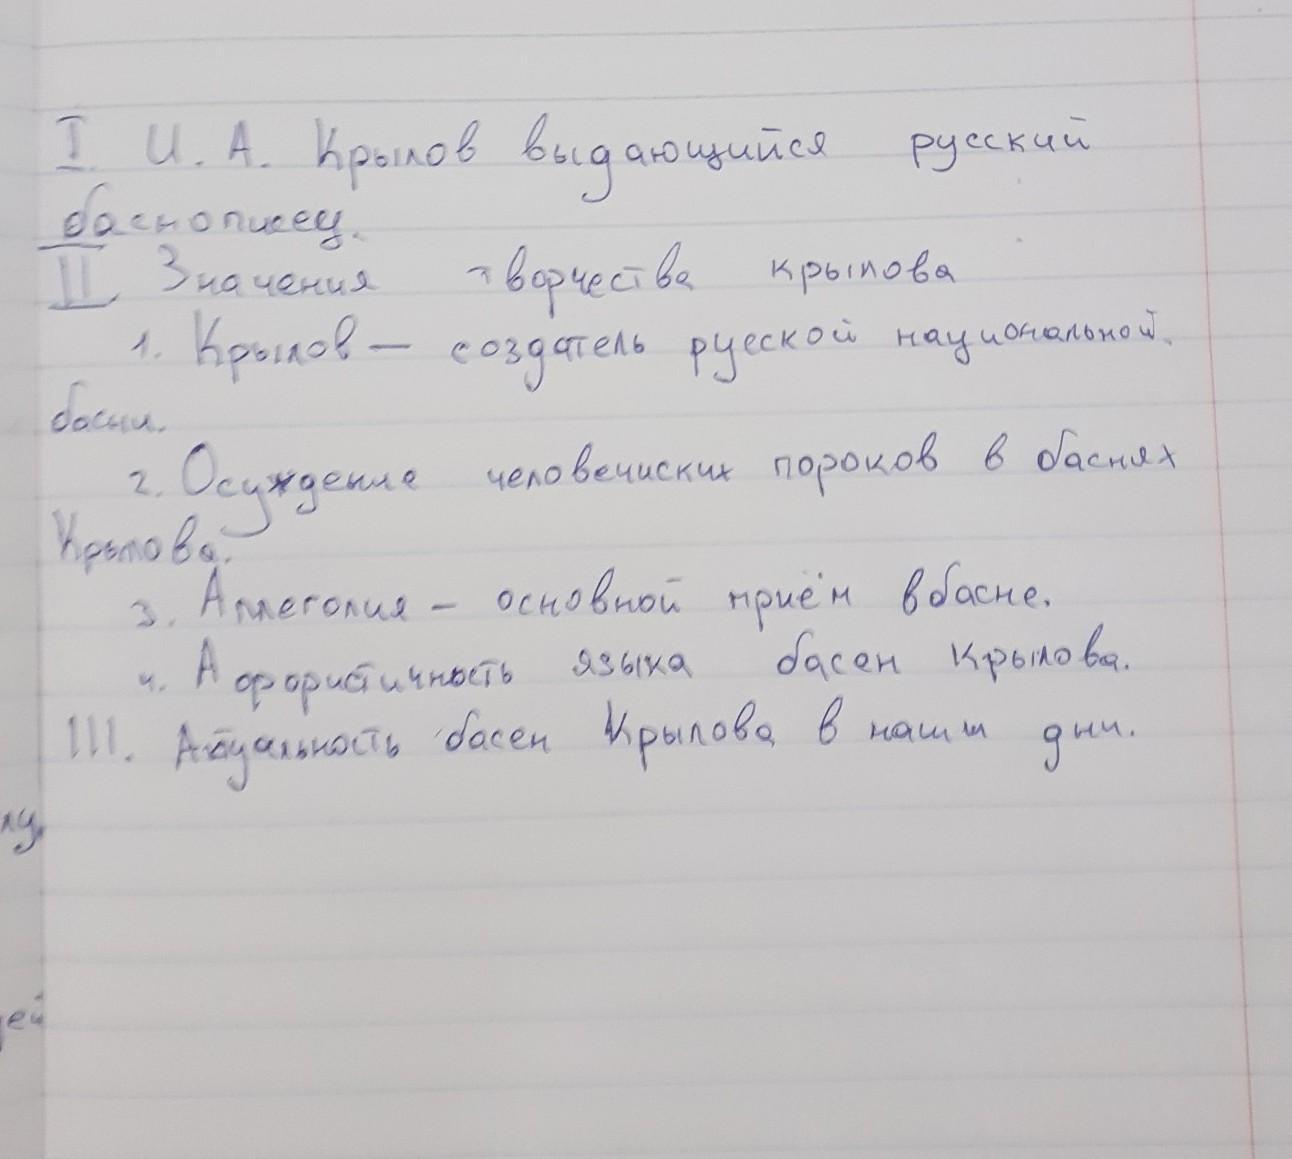 I. И. А. Крылов выдающийся русский
баснописец.
II. Значения творчества крылова
1. Крылов — создатель русской национальной
басни.
2. Осуждение человечиских пороков в баснях
Крылова.
3. Аллеголия – основной приём в басне.
4. Афористичность языка басен Крылова.
III. Актуальность басен Крылова в наши дни.
лу,
ей